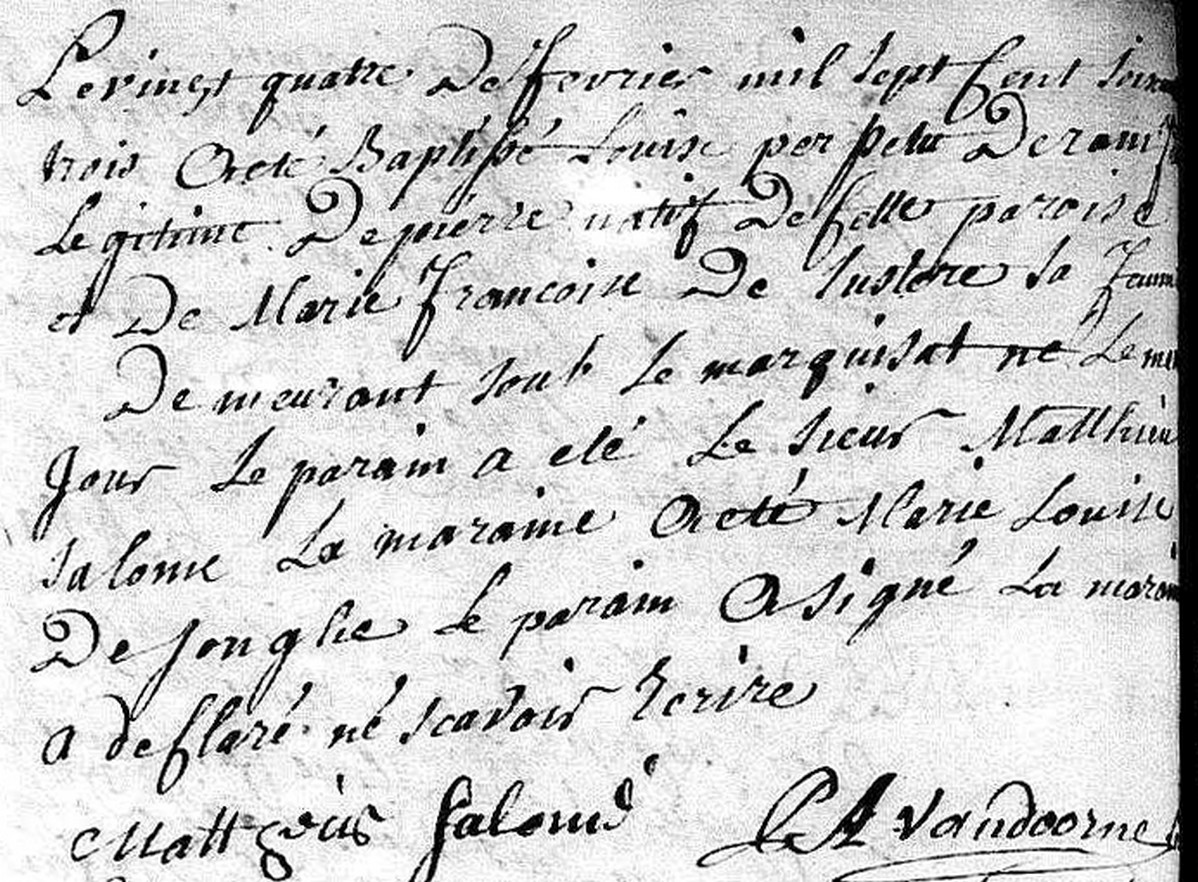 Le vingt quatre De fevrier mil sept cent soixa
trois a eté Baptissé Louise per petu Deram fi
Legitime De pierre natif De cette paroise
et De Marie francoise De Sustere sa famm
De meurant soub Le marquisat né Le me
Jour Le parain a eté Le sieur Matthieu
Salome La maraine a eté Marie Louise
De Jonghe Le parain a signé La marai
a declaré né scavoir Ecrire
Matthÿeus Salomé PA vandoorne